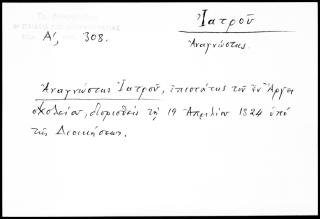 Ἰατροῦ
Ἀναγνώστης.
Α΄, 308.
Ἀναγνώστης Ἰατροῦ, ἐπιστάτης τοῦ ἐν Ἄργει
σχολείου, διορισθεὶς τῇ 19 Ἀπριλίου 1824 ὑπὸ
τῆς Διοικήσεως.